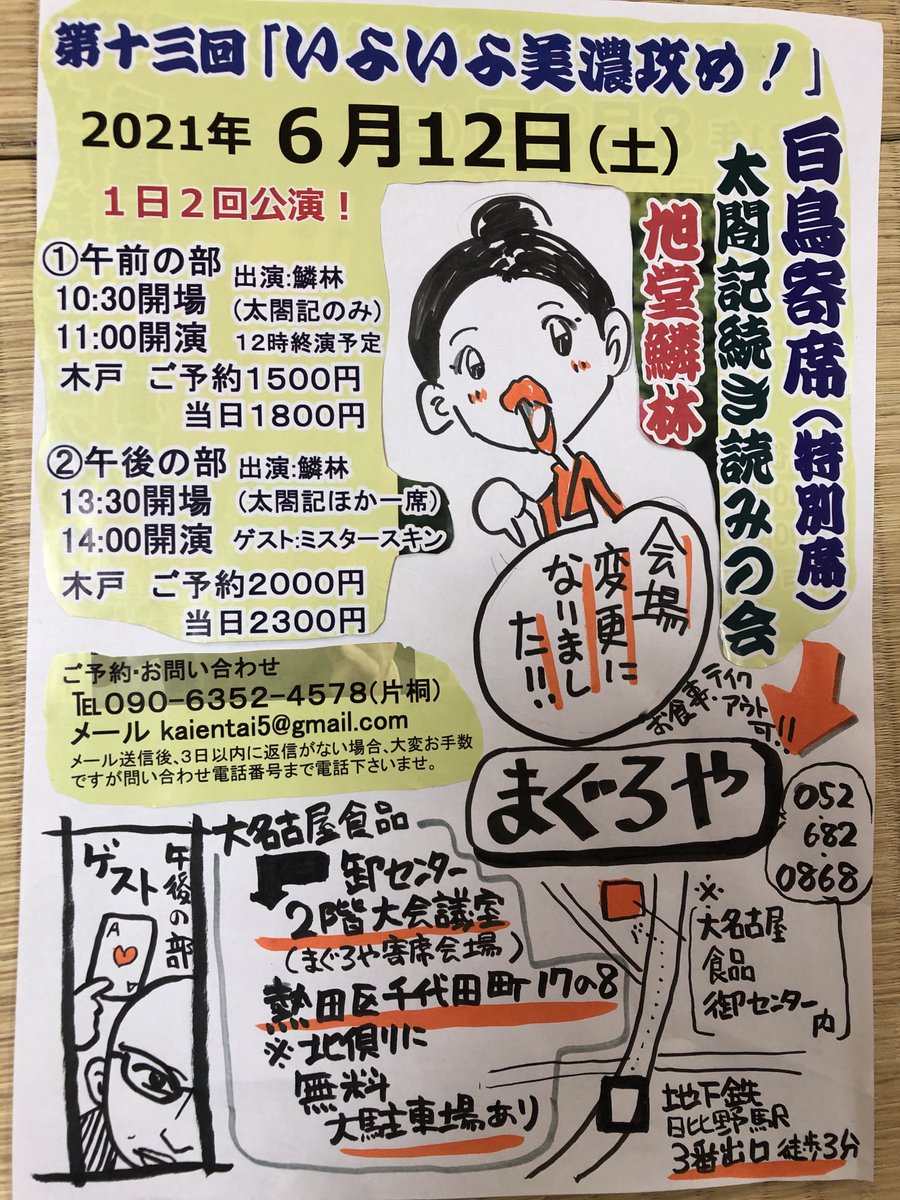 第十三回「いよいよ美濃攻め！」
2021年 6月12日(土)
1日2回公演！
白鳥寄席(特別席)
太閤記続き読みの会
旭堂鱗林
①午前の部 出演:鱗林
10:30開場 (太閤記のみ)
11:00開演 12時終演予定
木戸 ご予約1500円
当日1800円
②午後の部 出演:鱗林
13:30開場 (太閤記ほか一席)
14:00開演 ゲスト:ミスタースキン
木戸 ご予約2000円
当日2300円
会場
変更に
なりまし
た!!
ご予約・お問い合わせ
TEL090-6352-4578(片桐)
メール kaientai5@gmail.com
メール送信後、3日以内に返信がない場合、大変お手数
ですが問い合わせ電話番号まで電話下さいませ。
お食事・テイク
アウト
可!!
まぐろや
052
・682・
0868
午後の部
ゲスト
A
大名古屋食品
卸センター
2階大会議室
(まぐろや寄席会場)
熱田区千代田町17の8
※北側に
無料
大駐車場あり
※
大名古屋
食品
卸センター
内
地下鉄
日比野駅
3番出口 徒歩3分